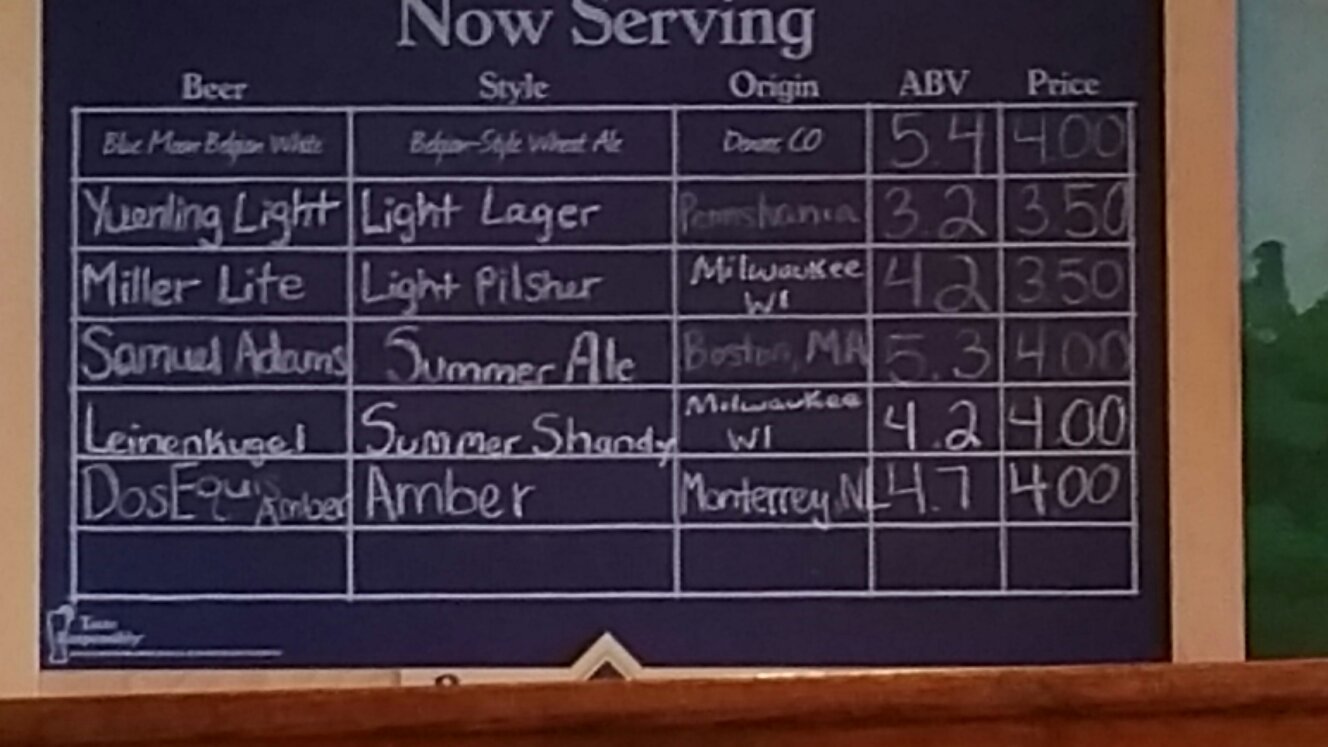 Now Serving
Beer Style Origin ABV Price
Blue Moon Belgian White Belgian-Style Wheat Ale Denver CO 5.4 4.00
Yuenling Light Light Lager Pennslvania 3.2 3.50
Miller Lite Light Pilsner Milwaukee WI 4.2 3.50
Samuel Adams Summer Ale Boston, MA 5.3 4.00
Leinenkugel Summer Shandy Milwaukee WI 4.2 4.00
Dos Equis Amber Amber Monterrey, NL 4.7 4.00
Taste
Responsibly